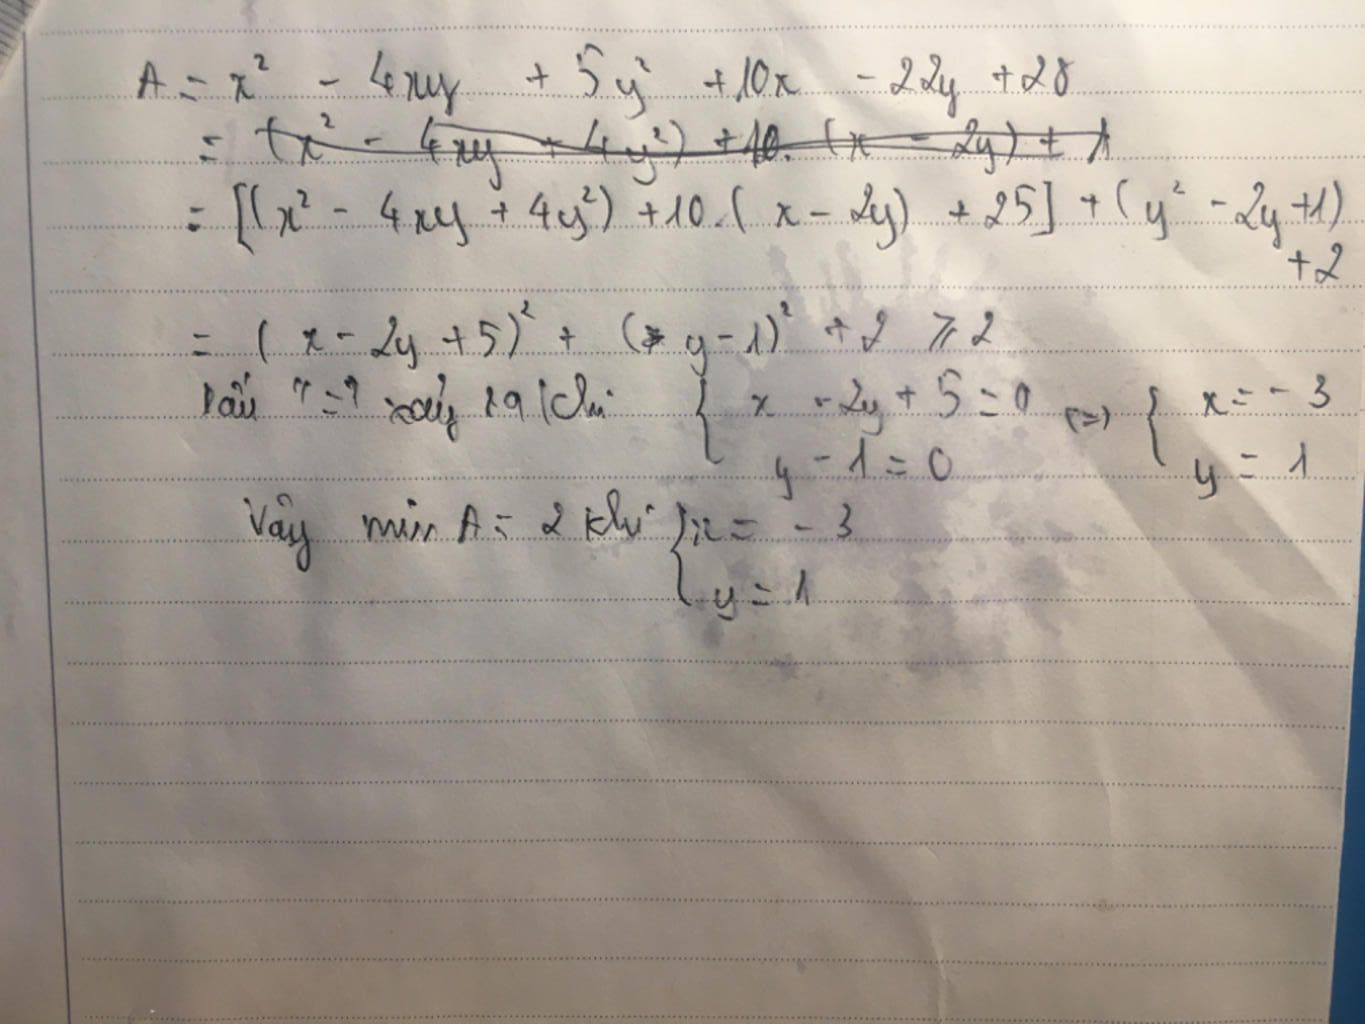 A = x² - 4xy + 5y² + 10x - 22y + 28
= (x² - 4xy + 4y²) + 10.(x - 2y) + 1
= [(x² - 4xy + 4y²) + 10.(x - 2y) + 25] + (y² - 2y + 1)
+ 2
= (x - 2y + 5)² + (y - 1)² + 2 ⩾ 2
Dấu "=" xảy ra khi { x - 2y + 5 = 0 (=) { x = - 3
y - 1 = 0 y = 1
Vậy min A = 2 khi { x = - 3
y = 1